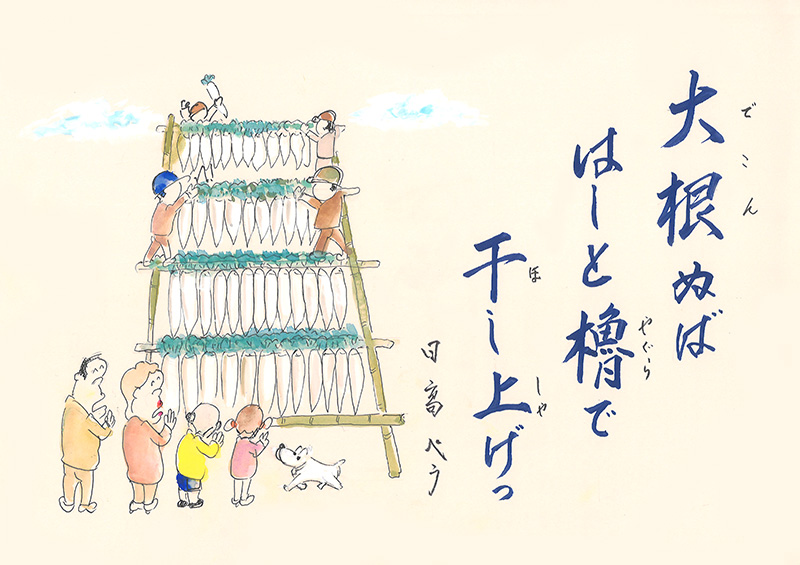 大根ぬば
でこん
はしと櫓で
やぐら
干し上げっ
ほ
しゃ